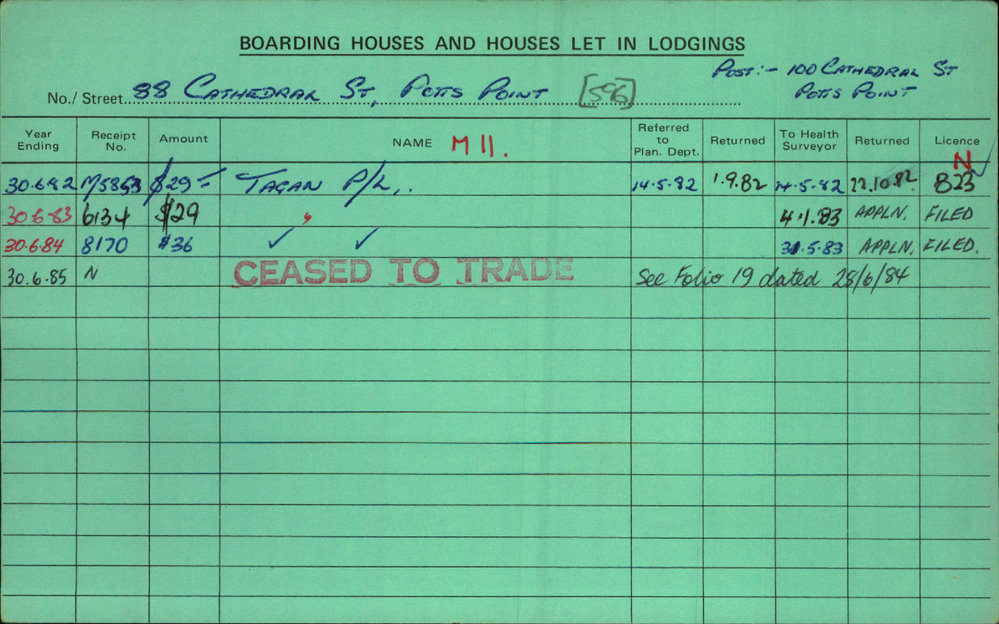 BOARDING HOUSES AND HOUSES LET IN LODGINGS
Post:- 100 Cathedral St
Potts Point
No./Street 88 Cathedral St, Potts Point [596]
Year Ending Receipt No. Amount NAME M 11. Referred to Plan. Dept. Returned To Health Surveyor Returned Licence
N
30.6.82 M5853 $29 - TAGAN P/L,. 14.5.82 1.9.82 14.5.82 22.10.82 B23 ✓
30.6.83 6134 $29 " 4.1.83 APPLN. FILED
30.6.84 8170 $36 ✓ ✓ 31.5.83 APPLN. FILED.
30.6.85 N CEASED TO TRADE See Folio 19 dated 28/6/84